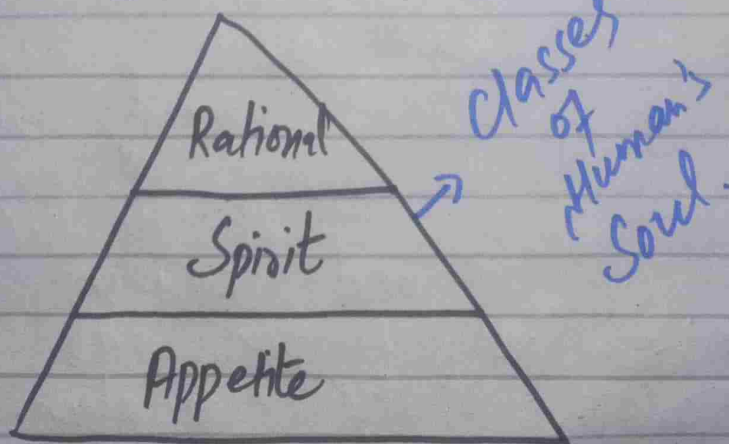 Rational
Spirit
Appetite
Classes
of
Human's
Soul.